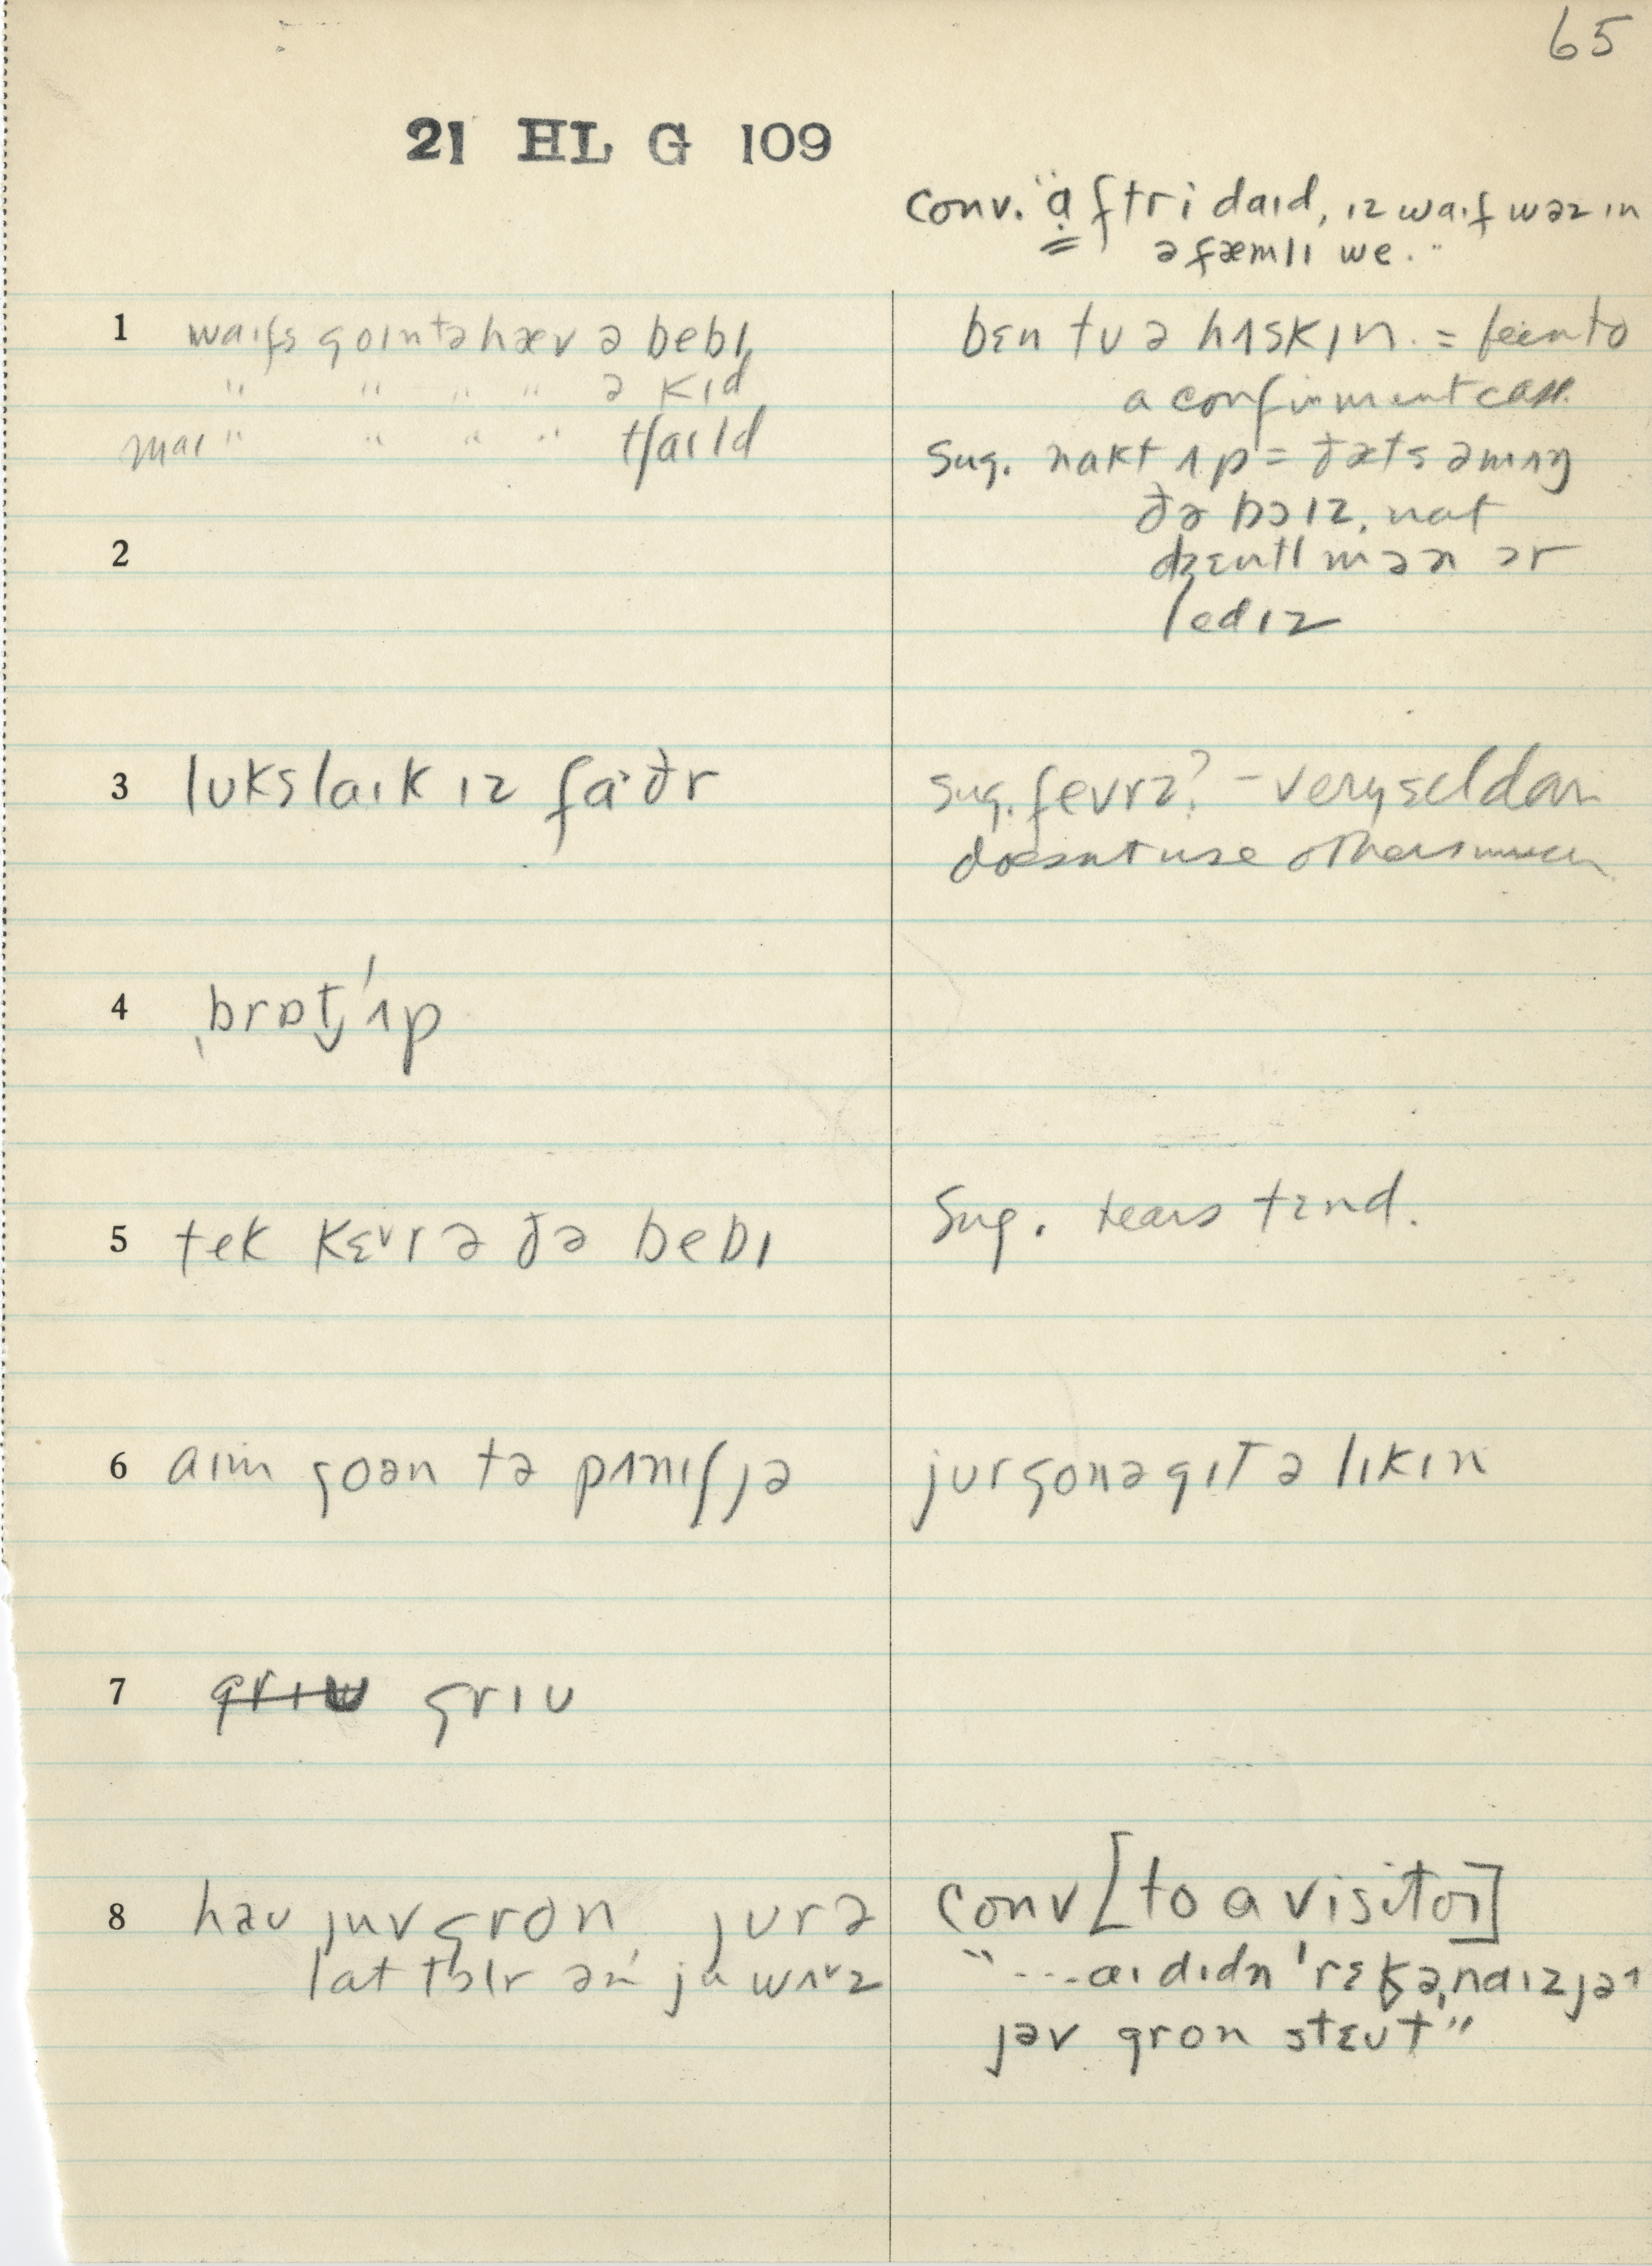 65
21 HL G 109
Conv. "a̤ftr i daɪd, ɪz waɪf wəz ɪn
ə fæmlɪ we."
1 waɪfs goɪn tə hæv ə bebɪ
" " " " ə kɪd
maɪ " " " " tʃaɪld
bɛn tu ə hʌskɪn. = been to
a confinement case.
Sug. nakt ʌp = ðæts əmʌŋ
ðə bɔɪz, nat
dʒɛntlmən ər
ledɪz
2
3 lʊks laɪk ɪz fa·ðr
sug. fevrz? – very seldom
doesnt use others much
4 ˌbrɒt̬ ˈʌp
5 tek kɛᵊr ə ðə bebɪ
Sug. tears tɛnd.
6 aɪm goən tə pʌnɪʃ jə
jur gonə gɪt ə lɪkɪn
7 grɪu grɪu
8 hæu juv gron, jur ə
lat tɔlr ən ju wʌᵊz
Conv [to a visitor]
"---aɪ dɪdn ˈrɛkəˌnaɪz jə,
jəv gron stɛut"